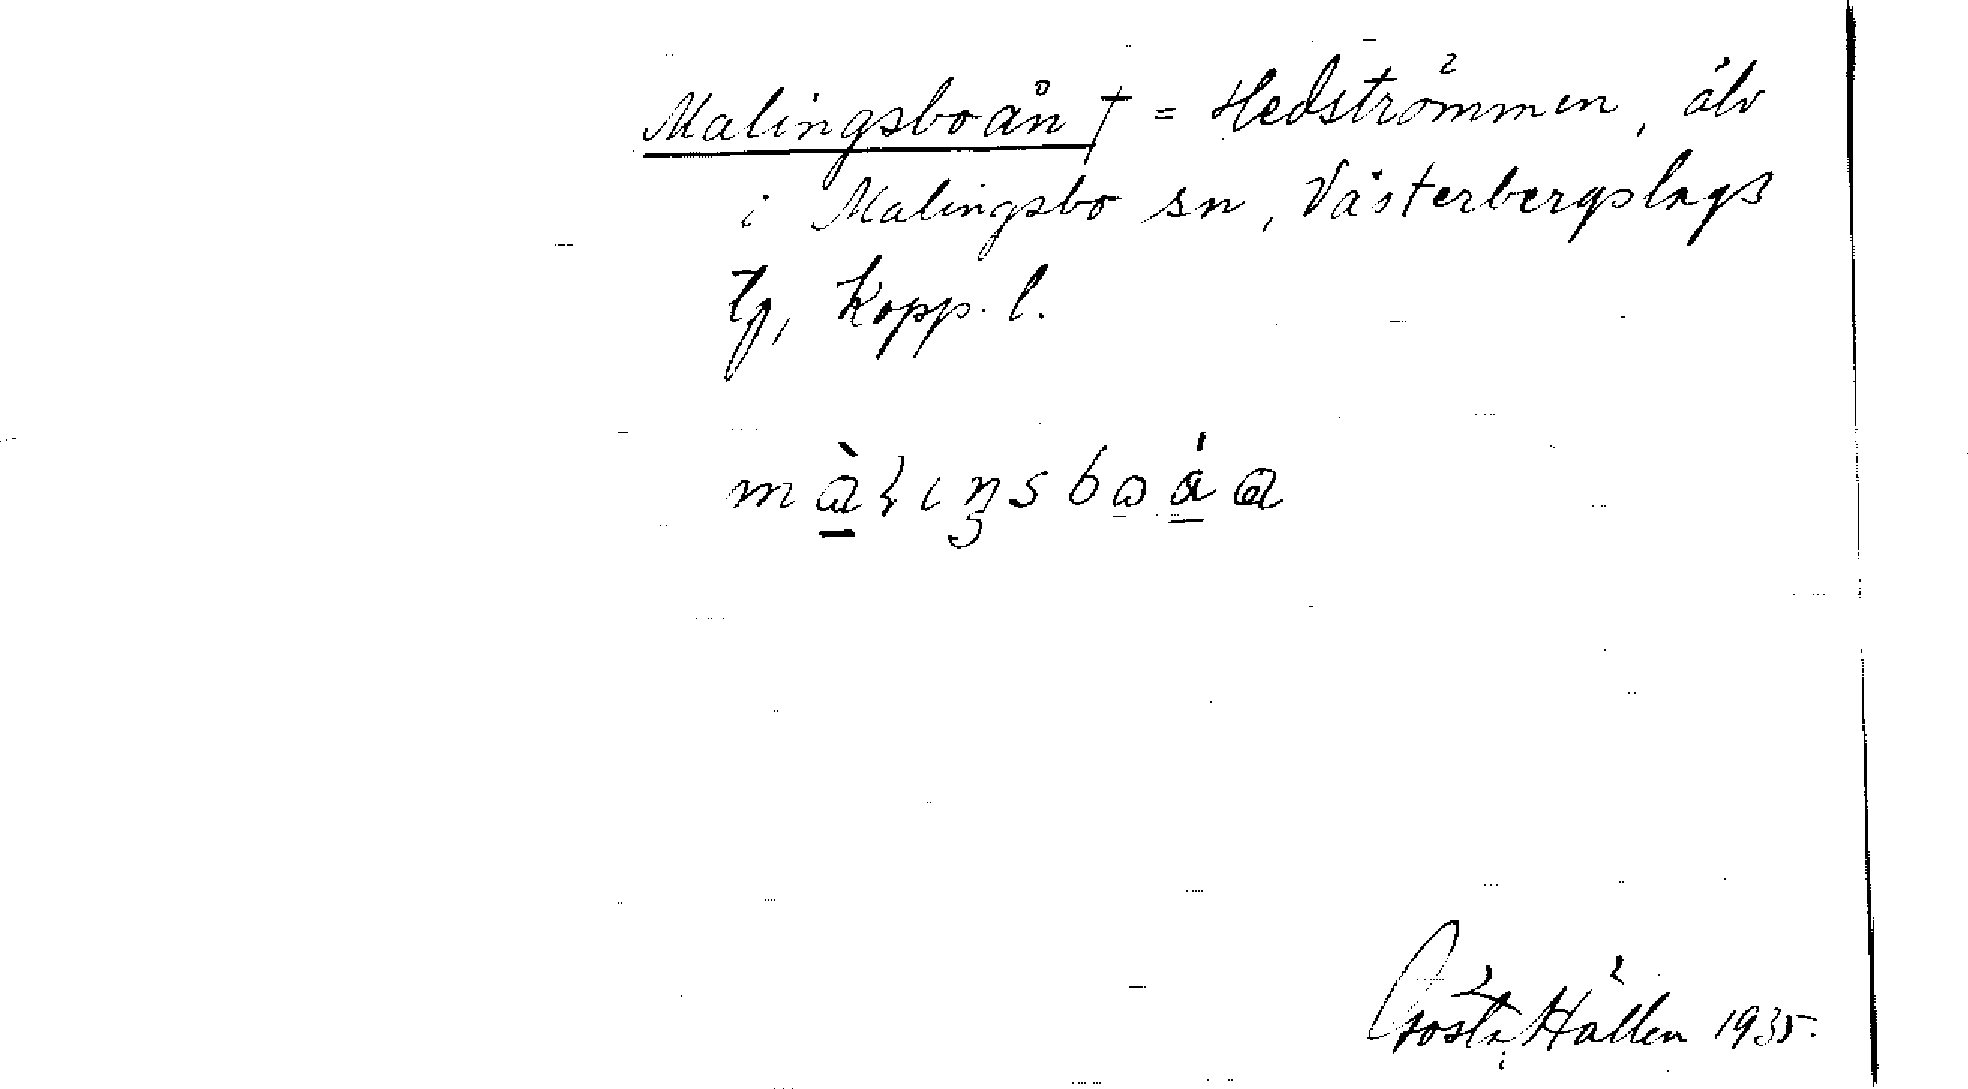 Malingsboån † = Hedströmmen, älv
i Malingsbo sn, Västerbergslags
tg, Kopp. l.
Gösta Hallen 1935.